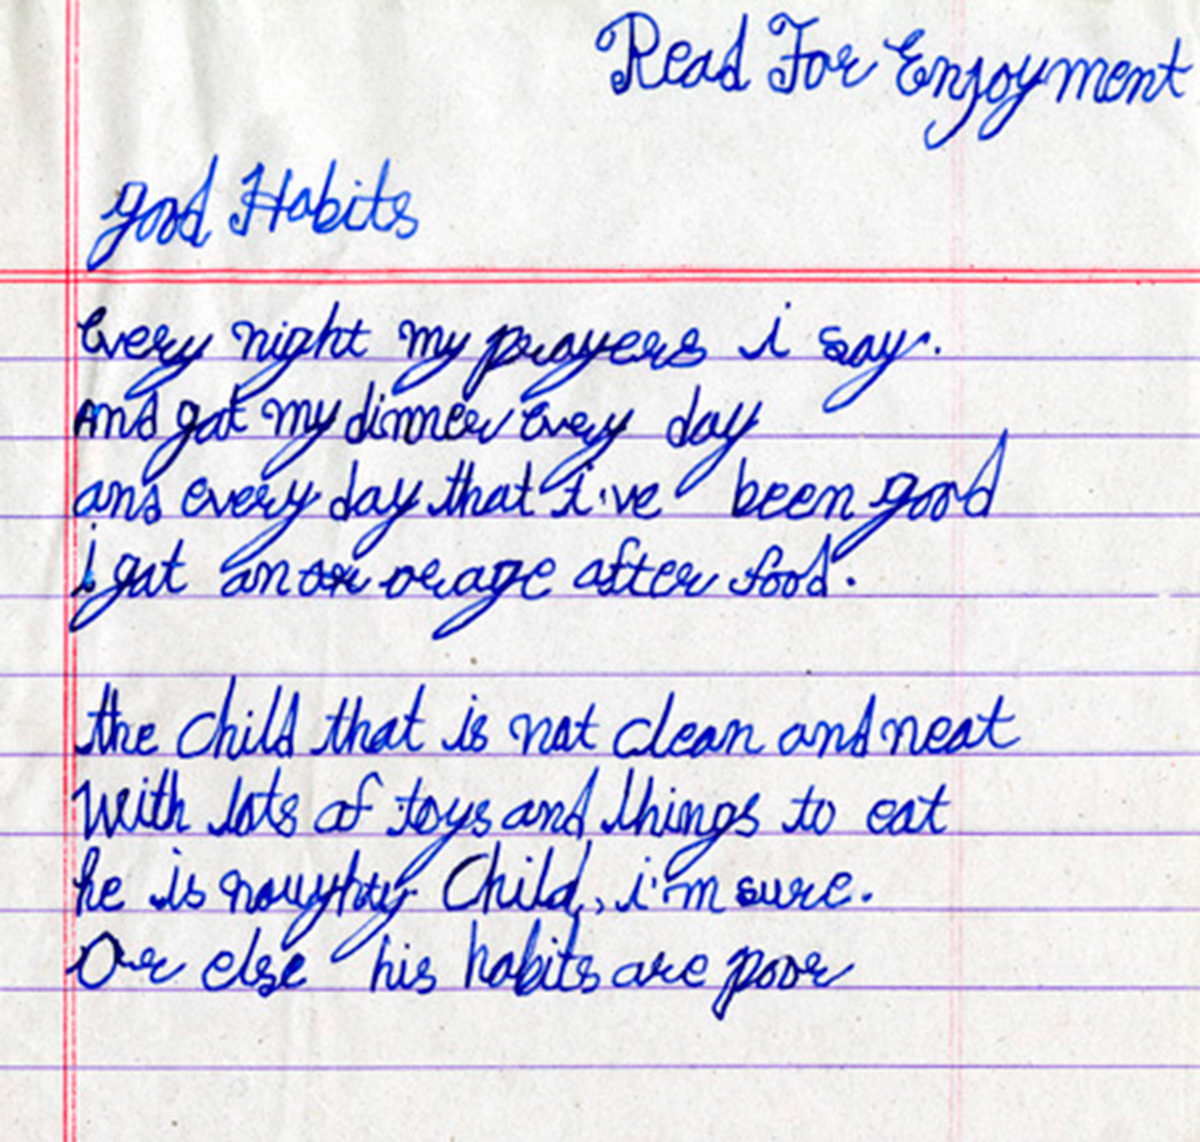 Read For Enjoyment
good Habits
Every night my prayers i say.
And gat my dinner every day
and every day that i've been good
i gat an or orage after food.
the child that is not clean and neat
With lots of toys and things to eat
he is noughty Child, i'm sure.
Or else his habits are poor